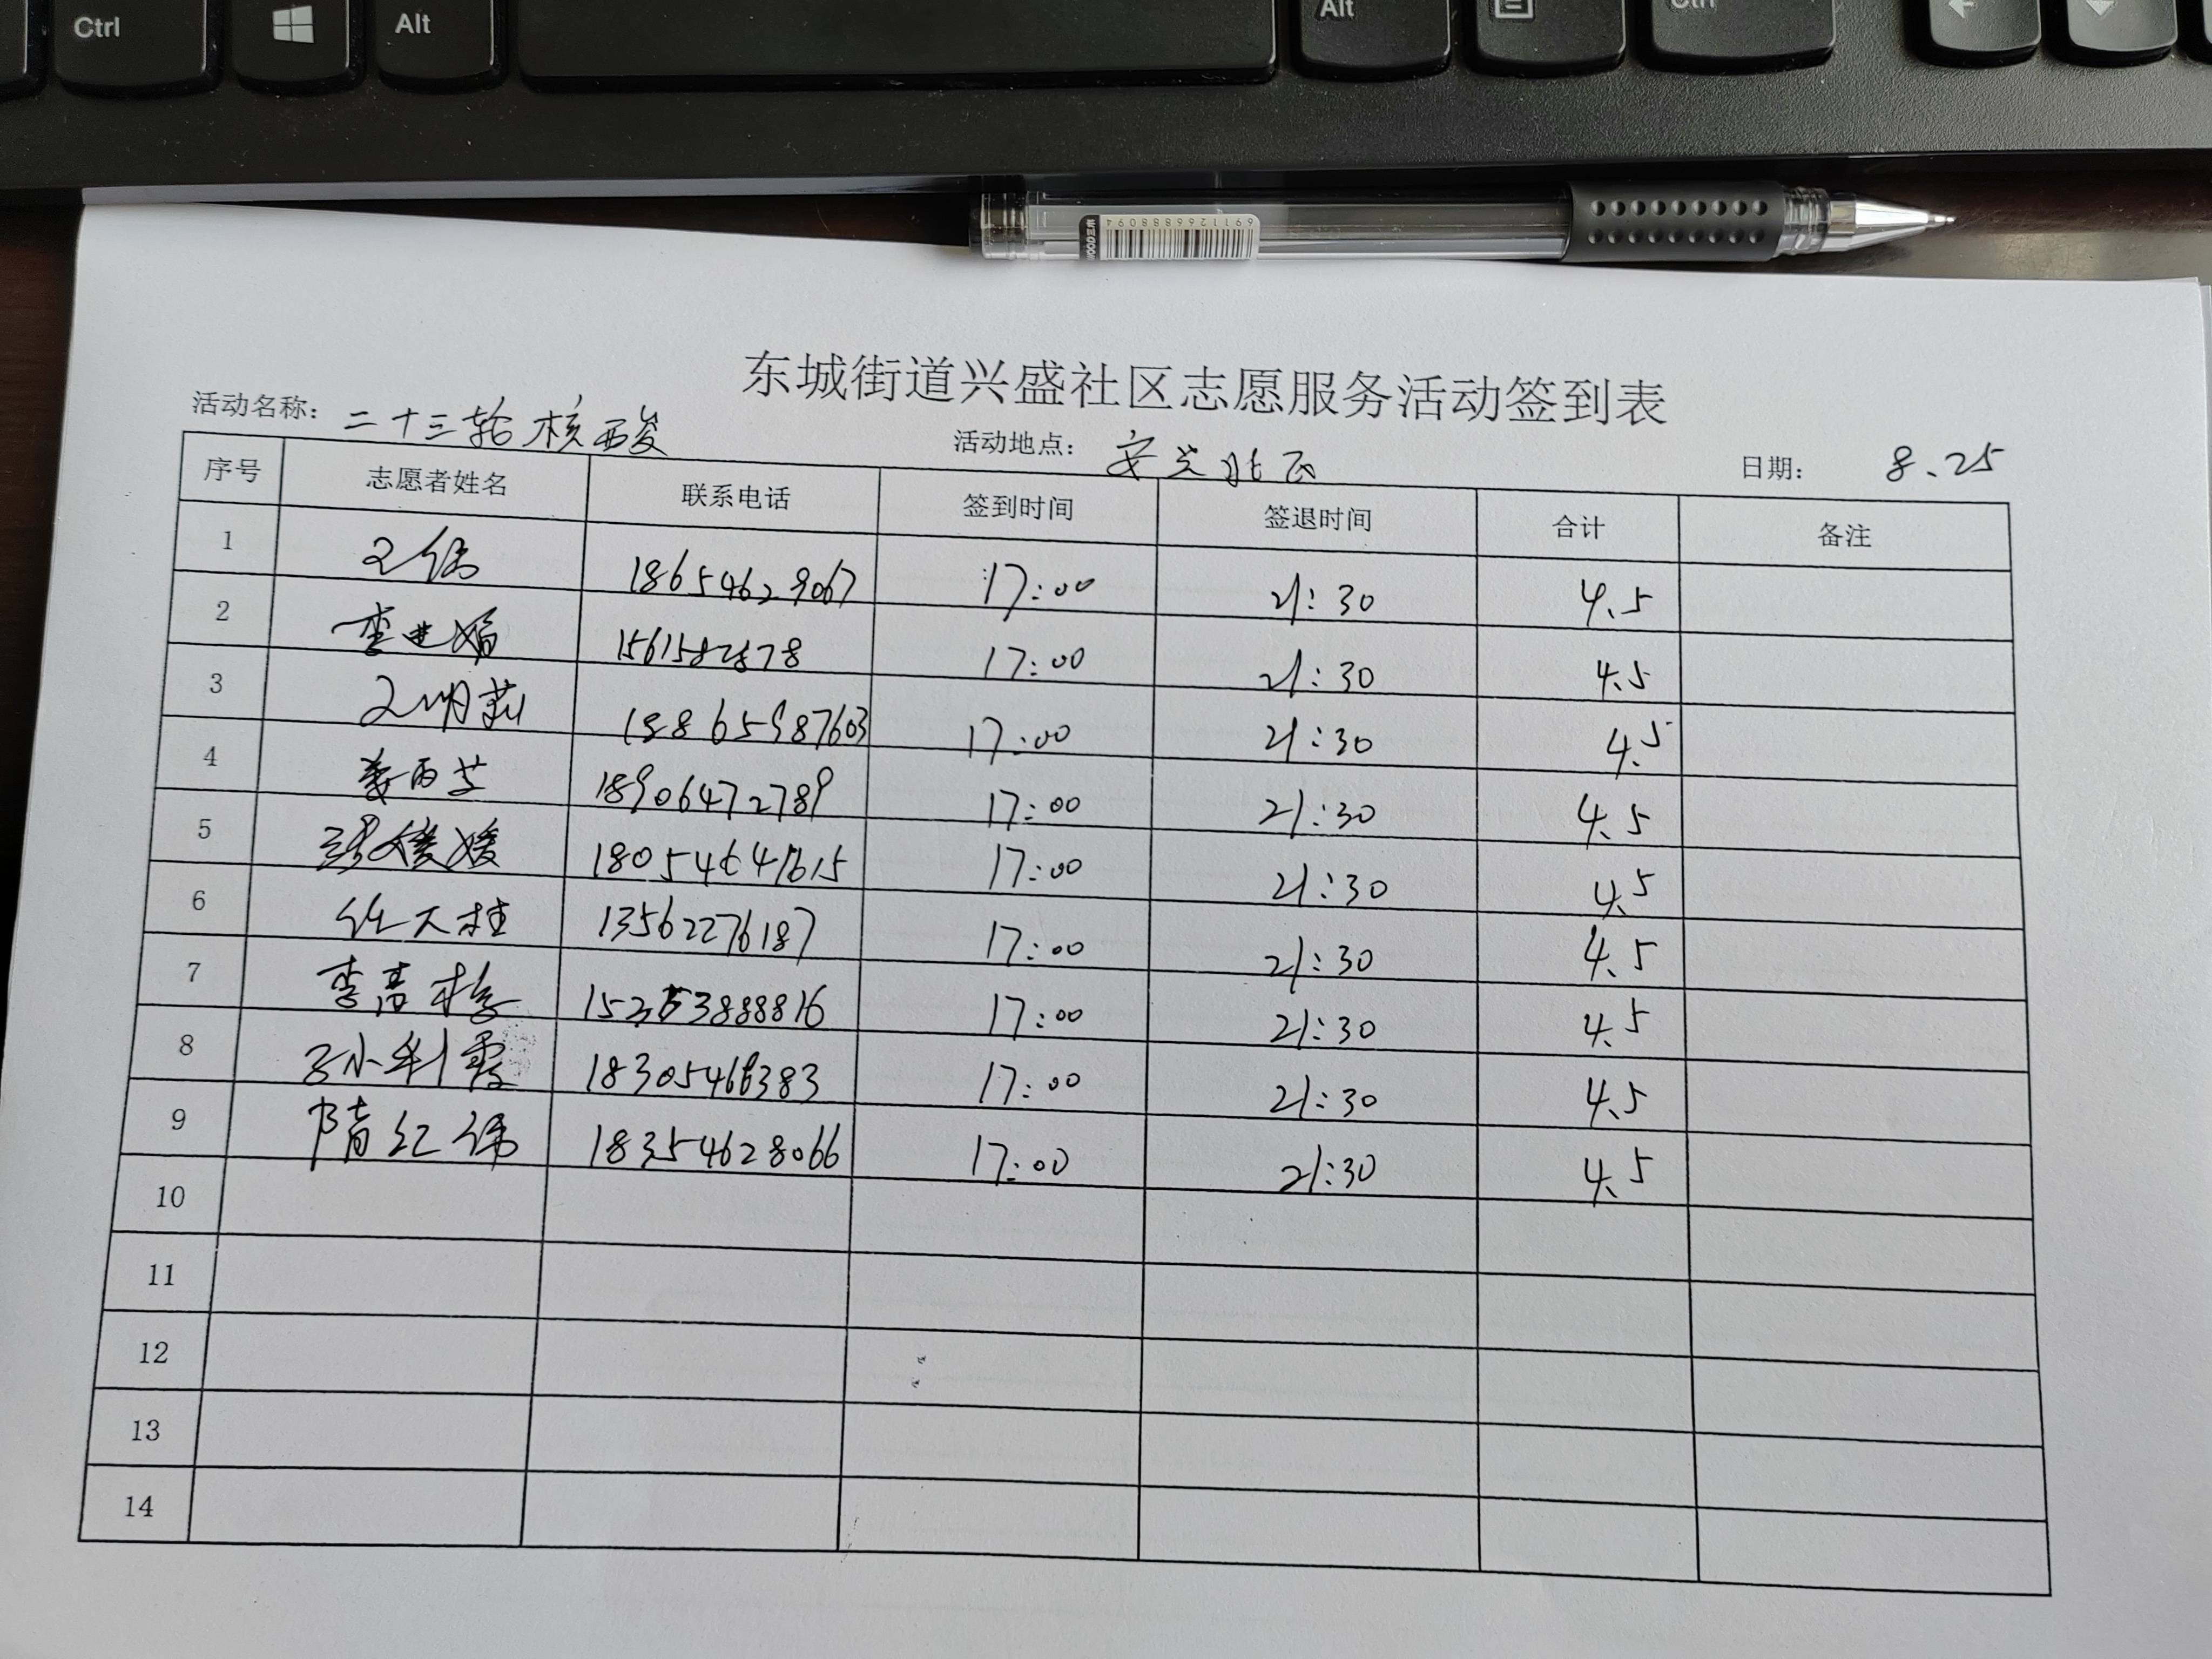 Ctrl
Alt
Alt
Ctrl
6911266888094
东城街道兴盛社区志愿服务活动签到表
活动名称: 二十三轮核酸 活动地点: 安兴北区 日期: 8.25
序号 志愿者姓名 联系电话 签到时间 签退时间 合计 备注
1 王伟 18654629067 17:00 21:30 4.5
2 17:00 21:30 4.5
3 王明莉 18865987603 17:00 21:30 4.5
4 姜雨芝 18906472789 17:00 21:30 4.5
5 媛媛 17:00 21:30 4.5
6 任天柱 13562276187 17:00 21:30 4.5
7 17:00 21:30 4.5
8 孙利霞 17:00 21:30 4.5
9 隋红伟 18354628066 17:00 21:30 4.5
10
11
12
13
14